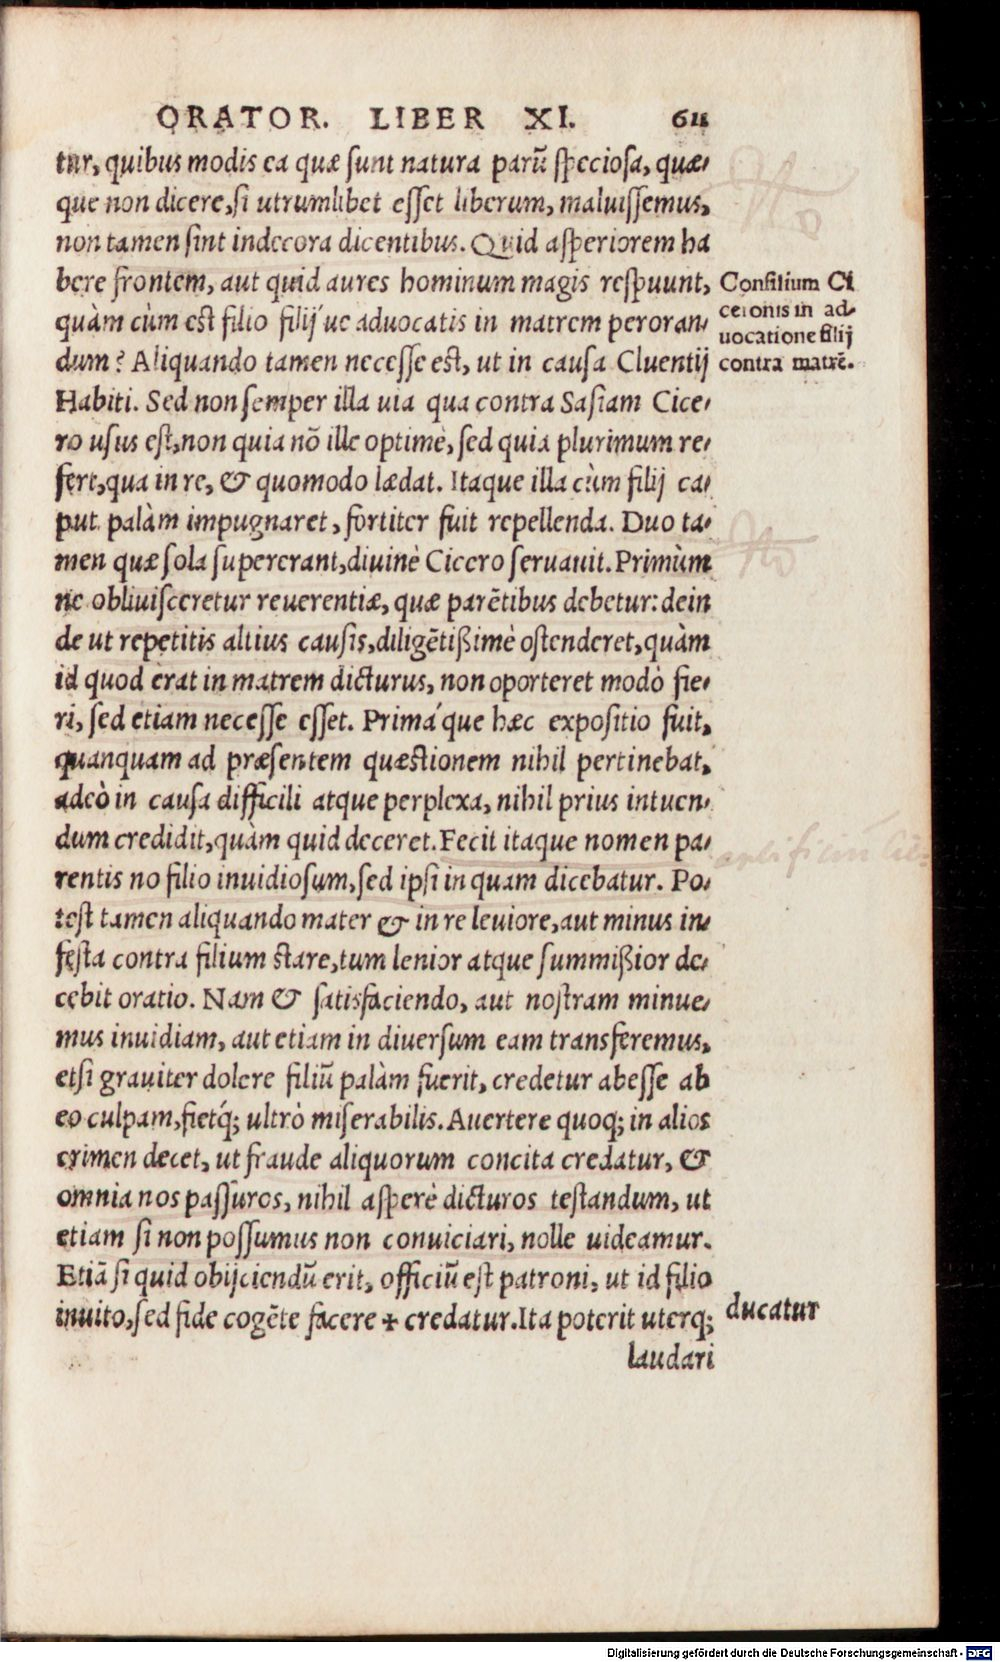 ORATOR. LIBER XI. 611
tur, quibus modis ea quæ sunt natura parũ speciosa, quæ-
que non dicere, si utrumlibet esset liberum, maluissemus,
non tamen sint indecora dicentibus. Quid asperiorem ha
bere frontem, aut quid aures hominum magis respuunt,
quàm cùm est filio filij´ue aduocatis in matrem peroran-
dum? Aliquando tamen necesse est, ut in causa Cluentij
Habiti. Sed non semper illa uia qua contra Sasiam Cice-
ro usus est, non quia nõ ille optimè, sed quia plurimum re-
fert, qua in re, & quomodo lædat. Itaque illa cùm filij ca-
put palàm impugnaret, fortiter fuit repellenda. Duo ta-
men quæ sola supererant, diuinè Cicero seruauit. Primùm
ne obliuisceretur reuerentiæ, quæ parẽtibus debetur: dein
de ut repetitis altius causis, diligẽtißimè ostenderet, quàm
id quod erat in matrem dicturus, non oporteret modò fie-
ri, sed etiam necesse esset. Primá que hæc expositio fuit,
quanquam ad præsentem quæstionem nihil pertinebat,
adeò in causa difficili atque perplexa, nihil prius intuen-
dum credidit, quàm quid deceret. Fecit itaque nomen pa-
rentis no filio inuidiosum, sed ipsi in quam dicebatur. Po-
test tamen aliquando mater & in re leuiore, aut minus in-
festa contra filium stare, tum lenior atque summißior de-
cebit oratio. Nam & satisfaciendo, aut nostram minue-
mus inuidiam, aut etiam in diuersum eam transferemus,
etsi grauiter dolere filiũ palàm fuerit, credetur abesse ab
eo culpam, fietq́; ultrò miserabilis. Auertere quoq; in alios
crimen decet, ut fraude aliquorum concita credatur, &
omnia nos passuros, nihil asperè dicturos testandum, ut
etiam si non possumus non conuiciari, nolle uideamur.
Etiã si quid obijciendũ erit, officiũ est patroni, ut id filio
inuito, sed fide cogẽte facere + credatur. Ita poterit uterq;
laudari
Consilium Ci
ceronis in ad-
uocatione filij
contra matrẽ.
ducatur
Digitalisierung gefördert durch die Deutsche Forschungsgemeinschaft - DFG